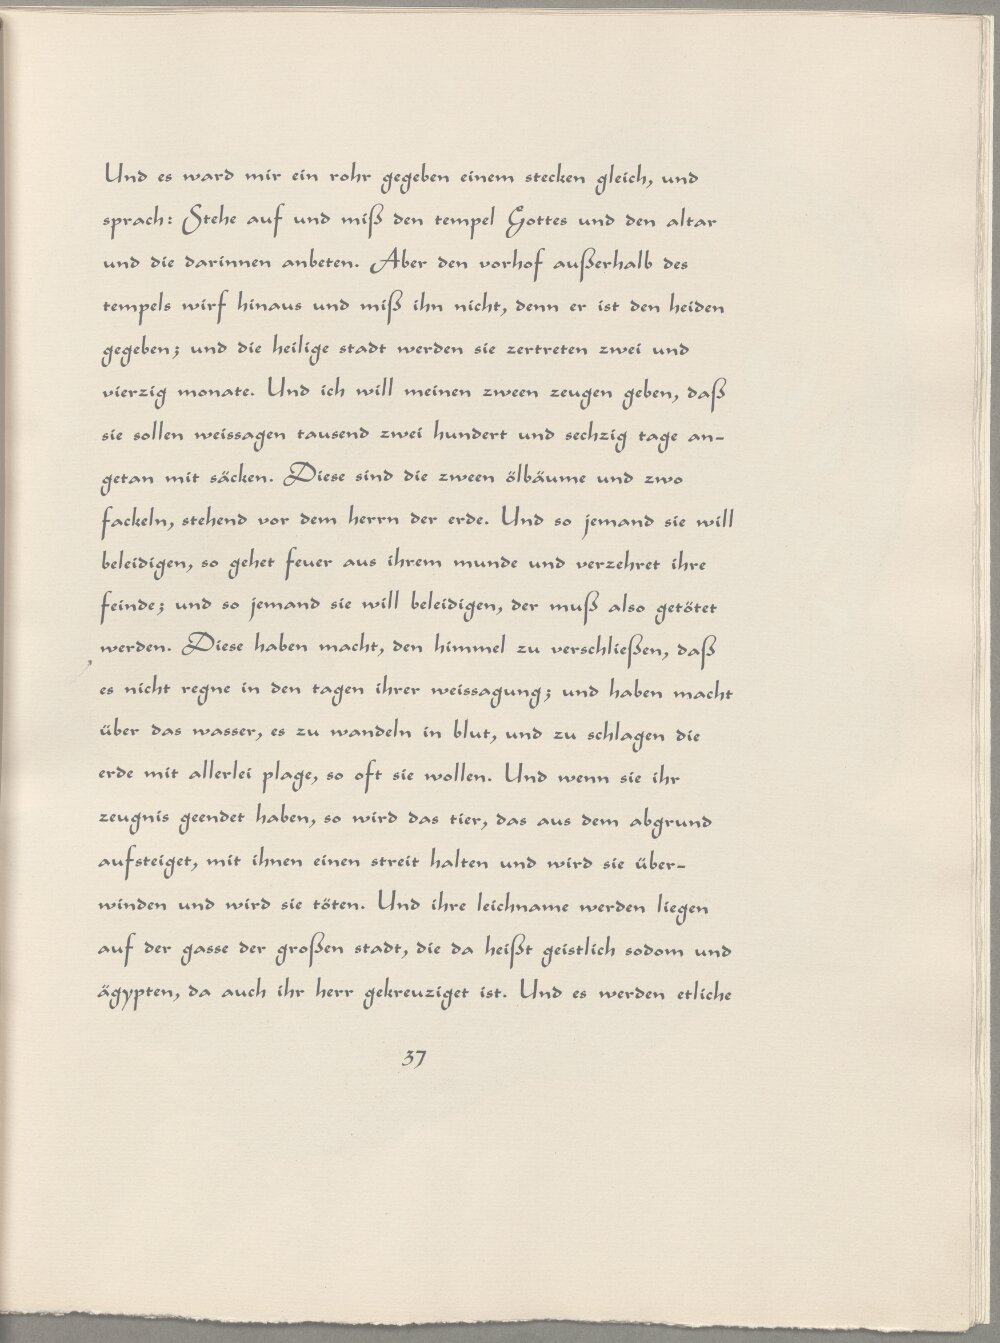 Und es ward mir ein rohr gegeben einem stecken gleich, und
sprach: Stehe auf und miß den tempel Gottes und den altar
und die darinnen anbeten. Aber den vorhof außerhalb des
tempels wirf hinaus und miß ihn nicht, denn er ist den heiden
gegeben; und die heilige stadt werden sie zertreten zwei und
vierzig monate. Und ich will meinen zween zeugen geben, daß
sie sollen weissagen tausend zwei hundert und sechzig tage an-
getan mit säcken. Diese sind die zween ölbäume und zwo
fackeln, stehend vor dem herrn der erde. Und so jemand sie will
beleidigen, so gehet feuer aus ihrem munde und verzehret ihre
feinde; und so jemand sie will beleidigen, der muß also getötet
werden. Diese haben macht, den himmel zu verschließen, daß
es nicht regne in den tagen ihrer weissagung; und haben macht
über das wasser, es zu wandeln in blut, und zu schlagen die
erde mit allerlei plage, so oft sie wollen. Und wenn sie ihr
zeugnis geendet haben, so wird das tier, das aus dem abgrund
aufsteiget, mit ihnen einen streit halten und wird sie über-
winden und wird sie töten. Und ihre leichname werden liegen
auf der gasse der großen stadt, die da heißt geistlich sodom und
ägypten, da auch ihr herr gekreuziget ist. Und es werden etliche
37